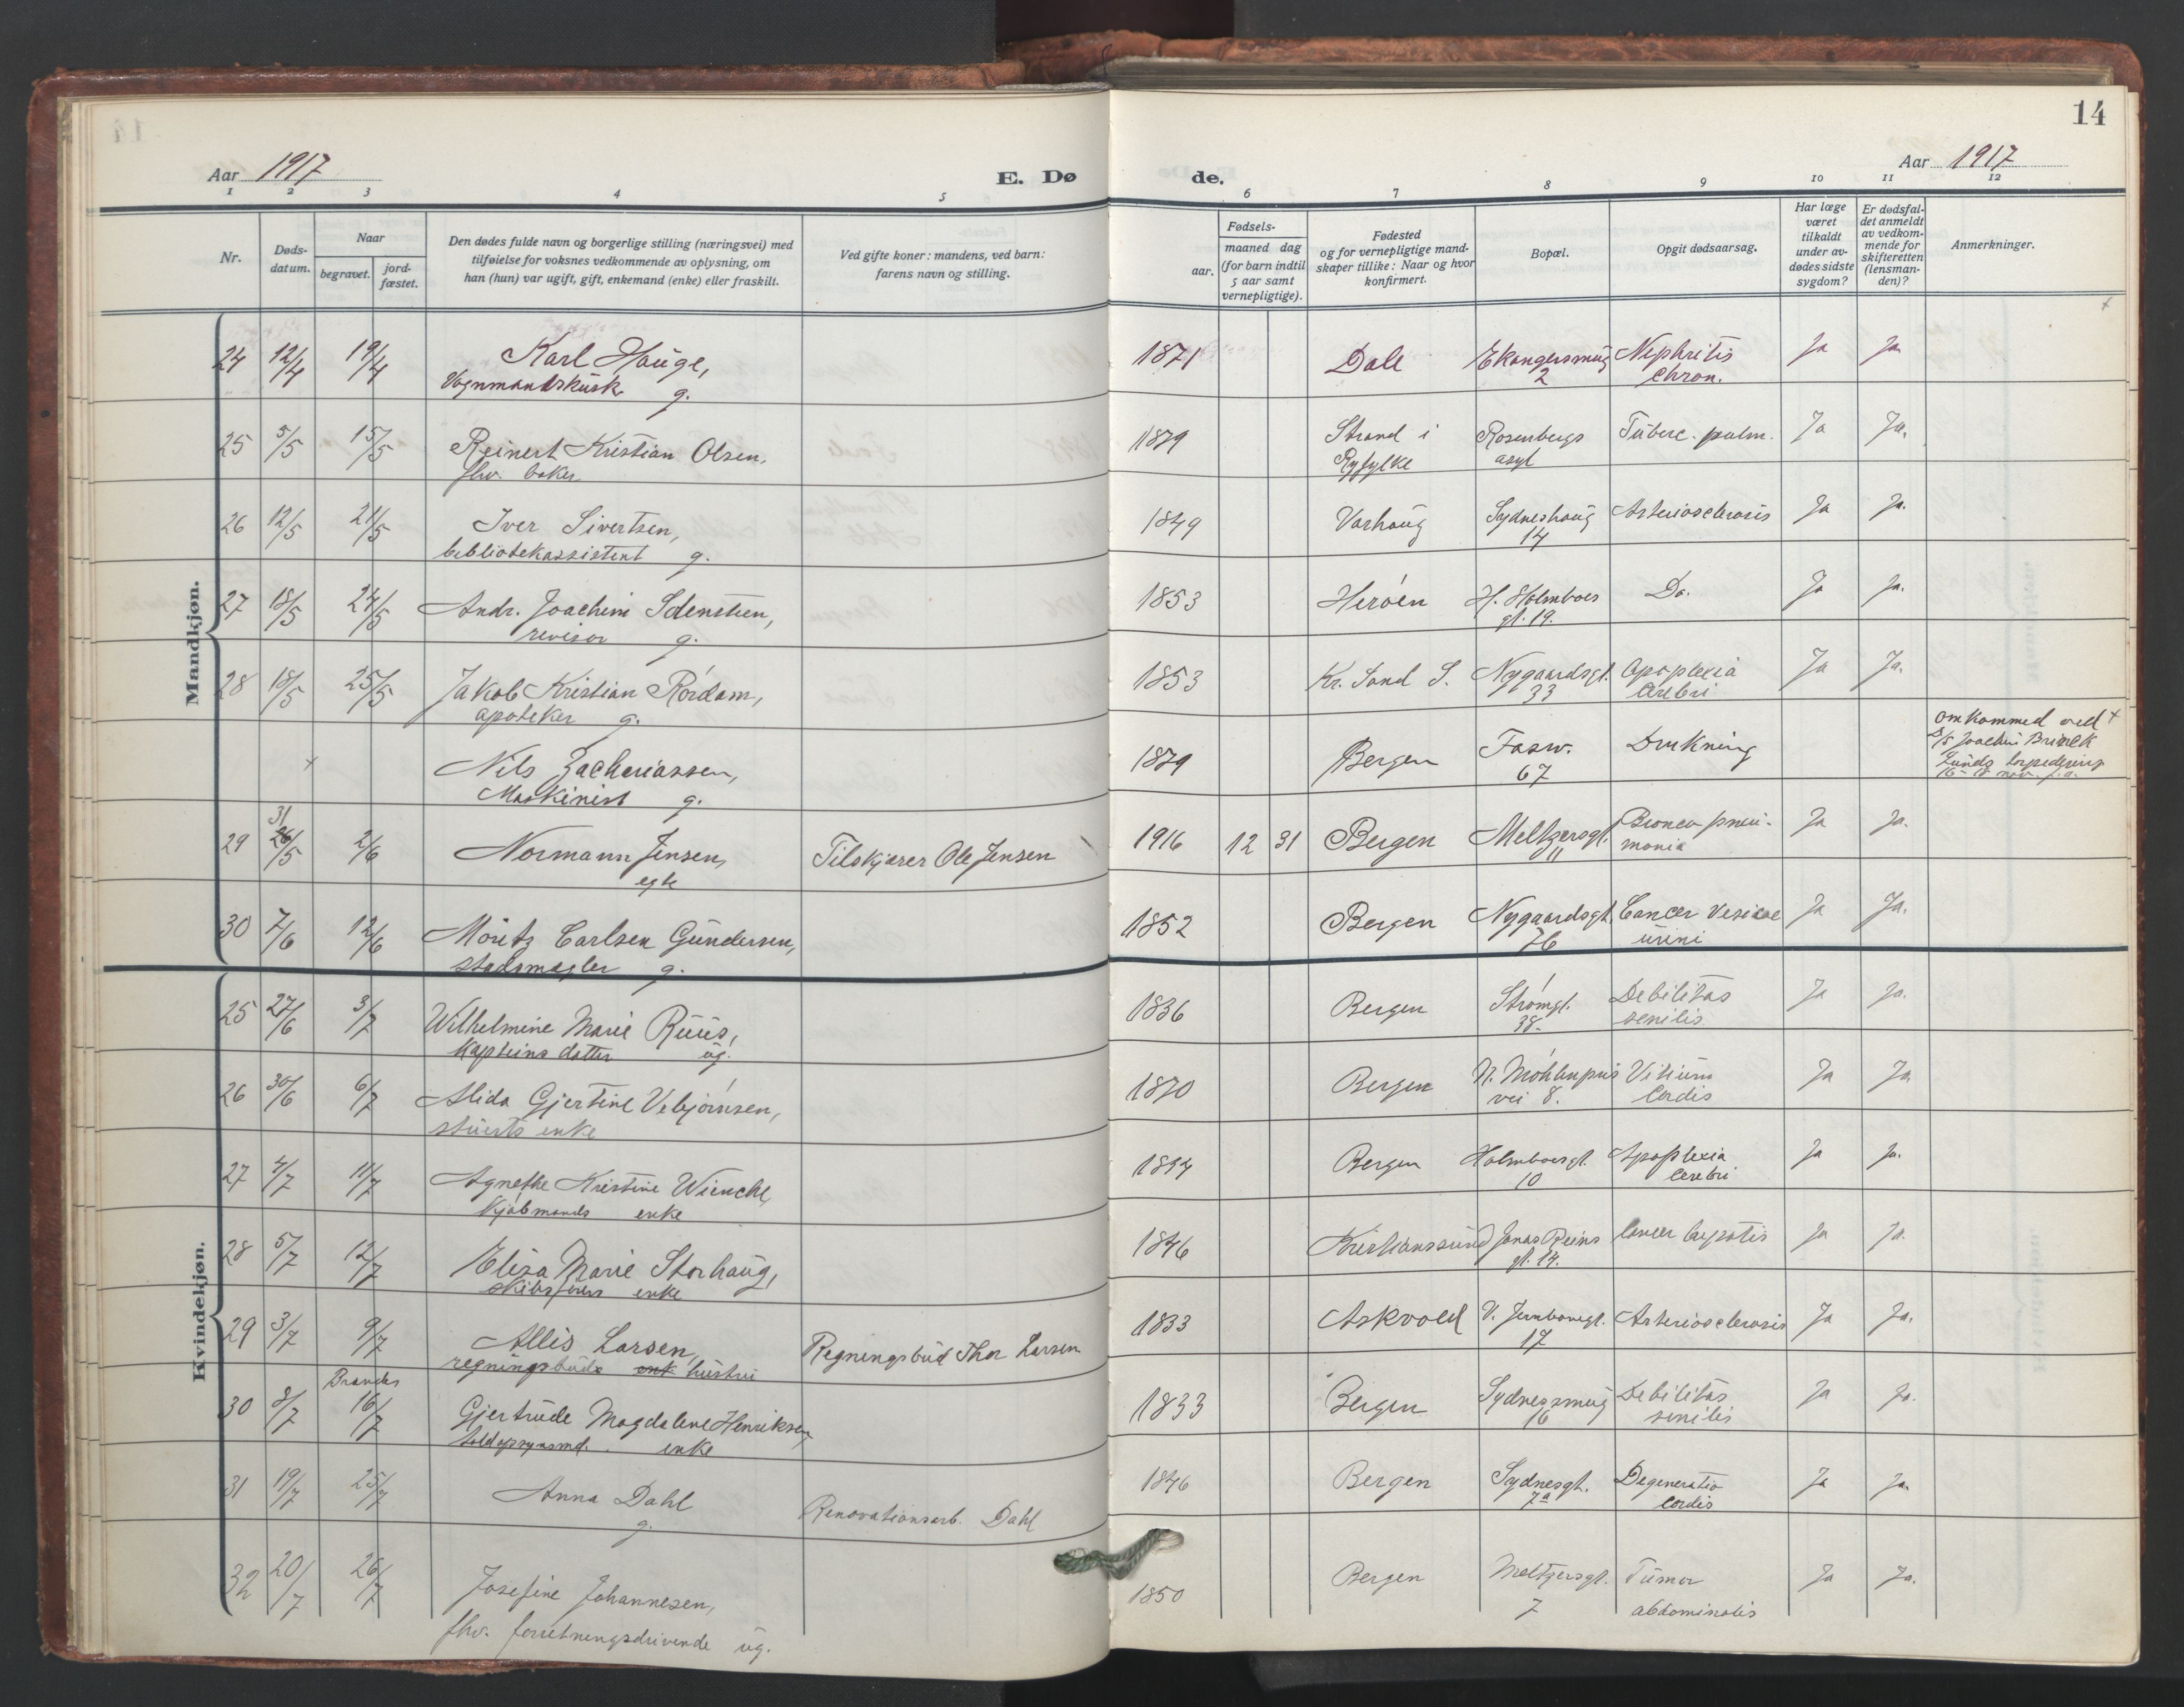 14
Aar 1917
E. Dø de.
Aar 1917
1 2 3 4 5 6 7 8 9 10 11 12
Nr.
Døds-
datum.
Naar
begravet.
jord-
fæstet.
Den dødes fulde navn og borgerlige stilling (næringsvei) med
tilføielse for voksnes vedkommende av oplysning, om
han (hun) var ugift, gift, enkemand (enke) eller fraskilt.
Ved gifte koner: mandens, ved barn:
farens navn og stilling.
Fødsels-
aar.
maaned dag
(for barn indtil
5 aar samt
vernepligtige).
Fødested
og for vernepligtige mand-
skaper tillike: Naar og hvor
konfirmert.
Bopæl.
Opgit dødsaarsag.
Har læge
været
tilkaldt
under av-
dødes sidste
sygdom?
Er dødsfal-
det anmeldt
av vedkom-
mende for
skifteretten
(lensman-
den)?
Anmerkninger.
Mandkjøn.
24 12/4 19/4 Karl Hauge, 1871 Dale Ekangersmug Nephritis Ja Ja
Vognmandskusk g. 2 Chron.
25 5/5 15/5 Reinert Kristian Olsen, 1879 Strand i Rosenbergs Tuberc. pulm. Ja Ja.
fhv. baker Ryfylke asyl
26 12/5 21/5 Iver Sivertsen, 1849 Varhaug Sydneshaug Arteriosclerosis Ja Ja.
bibliotekassistent g. 14
27 18/5 24/5 Andr. Joachim 1853 Herøen H. Holmboes Do. Ja Ja.
revisor g. gt. 19.
28 18/5 25/5 Jakob Kristian Rørdam, 1853 Kr. Sand S. Nygaardsgt. Apoplexia Ja Ja.
apoteker g. 33 Cerebri
+ Nils Zachariassen, 1879 Bergen Drukning omkommed ved +
Maskinist g. 67 D/S Joachim Brinck
Lunds torpedering
nov. f. a.
31
29 26/5 2/6 Normann Jensen, Tilskjærer Ole Jensen 1916 12 31 Bergen Meltzersgt. Bronco pneu- Ja Ja.
egte 11 monia
30 7/6 12/6 Moritz Carlsen Gundersen, 1852 Bergen Nygaardsgt. Cancer vesicae Ja Ja.
stadsmægler g. 76 urini
Kvindekjøn.
25 27/6 3/7 Wilhelmine Marie Ruus, 1836 Bergen Strømgt. Debilitas Ja Ja.
Kapteins datter ug. 38. senilis
26 30/6 6/7 Alida Gjertine Vebjørnsen, 1870 Bergen N. Møhlenpris Vitium Ja Ja
stuerts enke vei 8. Cordis
27 4/7 11/7 Agnethe Kristine Wiencke, Bergen Holmboesgt. Apoplexia Ja Ja.
Kjøbmands enke 10 Cerebri
28 5/7 12/7 Eliza Marie Storhaug, 1846 Kristianssund Jonas Reins Cancer hepatis Ja Ja.
Skibsførers enke gt. 14.
29 3/7 9/7 Allis Larsen, Regningsbud Thor Larsen 1833 Askvold V. Jernbanegt. Arteriosclerosis Ja Ja.
regningsbuds enk hustru 17
Brændes
30 8/7 16/7 Gjertrude Magdalene Henriksen, 1833 Bergen Sydnessmug Debilitas Ja Ja.
toldopsynsmd. enke 16 senilis
31 19/7 25/7 Anna Dahl Renovationsarb. Dahl 1846 Bergen Sydnesgt. Degeneratio Ja Ja.
g. 7a Cordis
32 20/7 26/7 Josefine Johannesen, 1850 Bergen Meltzersgt. Tumor Ja Ja.
fhv. forretningsdrivende ug. 7 abdominalis